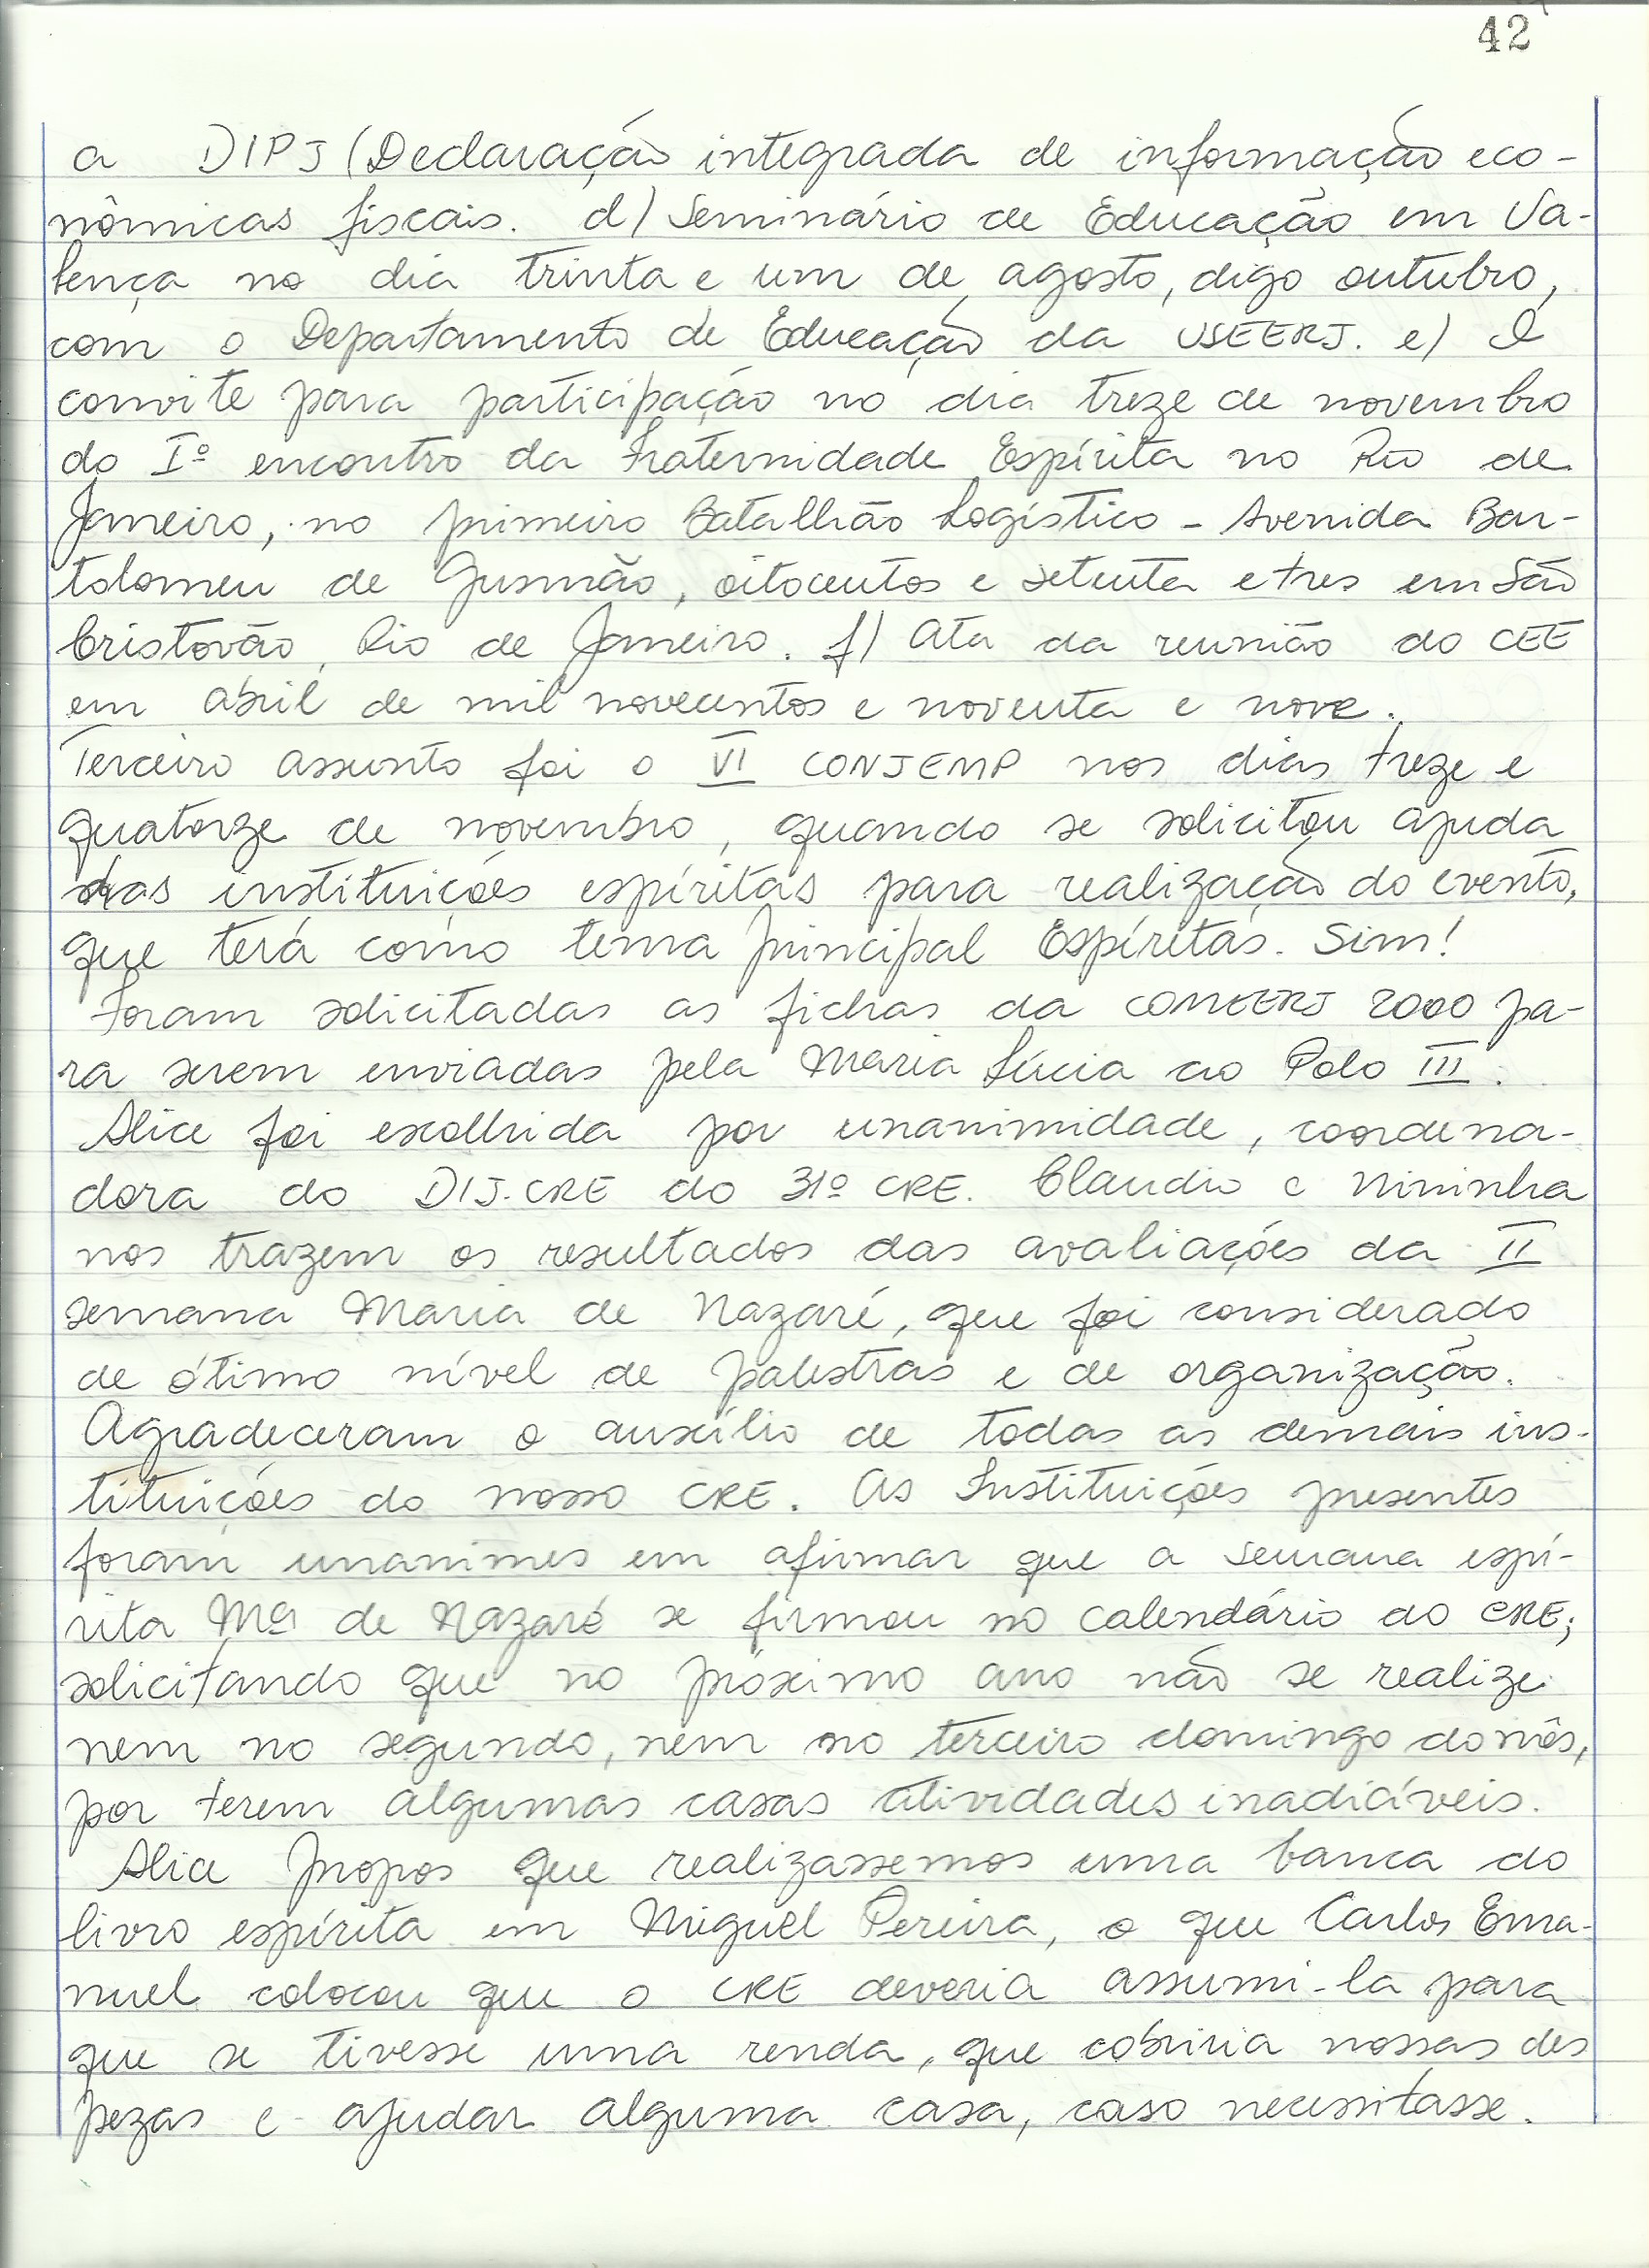 42
a DIPJ (Declaração integrada de informação eco-
nômicas fiscais. d) Seminário de Educação em Va-
lença no dia trinta e um de agosto, digo outubro,
com o Departamento de Educação da USEERJ. e) O
convite para participação no dia treze de novembro
do Iº encontro da Fraternidade Espírita no Rio de
Janeiro, no primeiro Batalhão Logístico - Avenida Bar-
tolomeu de Gusmão, oitocentos e setenta e tres em São
Cristovão, Rio de Janeiro. f) Ata da reunião do CEE
em abril de mil novecentos e noventa e nove.
Terceiro assunto foi o VI CONJEMP nos dias treze e
quatorze de novembro, quando se solicitou ajuda
das instituições espíritas para realização do evento,
que terá como tema principal Espíritas. Sim!
Foram solicitadas as fichas da COMEERJ 2000 pa-
ra serem enviadas pela Maria Lúcia ao Polo III.
Alice foi escolhida por unanimidade, coordena-
dora do DIJ.CRE do 31º CRE. Claudio e Nininha
nos trazem os resultados das avaliações da II
semana Maria de Nazaré, que foi considerado
de ótimo nível de palestras e de organização.
Agradeceram o auxílio de todas as demais ins-
tituições do nosso CRE. As Instituições presentes
foram unanimes em afirmar que a semana espí-
rita Mª de Nazaré se firmou no calendário do CRE;
solicitando que no próximo ano não se realize
nem no segundo, nem no terceiro domingo do mês,
por terem algumas casas atividades inadiáveis.
Alice propos que realizassemos uma banca do
livro espírita em Miguel Pereira, o que Carlos Ema-
nuel colocou que o CRE deveria assumi-la para
que se tivesse uma renda, que cobriria nossas des
pezas e ajudar alguma casa, caso necessitasse.